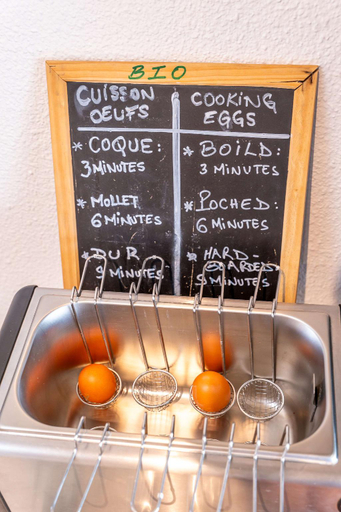 BIO
CUISSON
OEUFS
* COQUE:
3 MINUTES
* MOLLET
6 MINUTES
* DUR
9 MINUTES
COOKING
EGGS
* BOILD:
3 MINUTES
* POCHED:
6 MINUTES
* HARD-
9 MINUTES